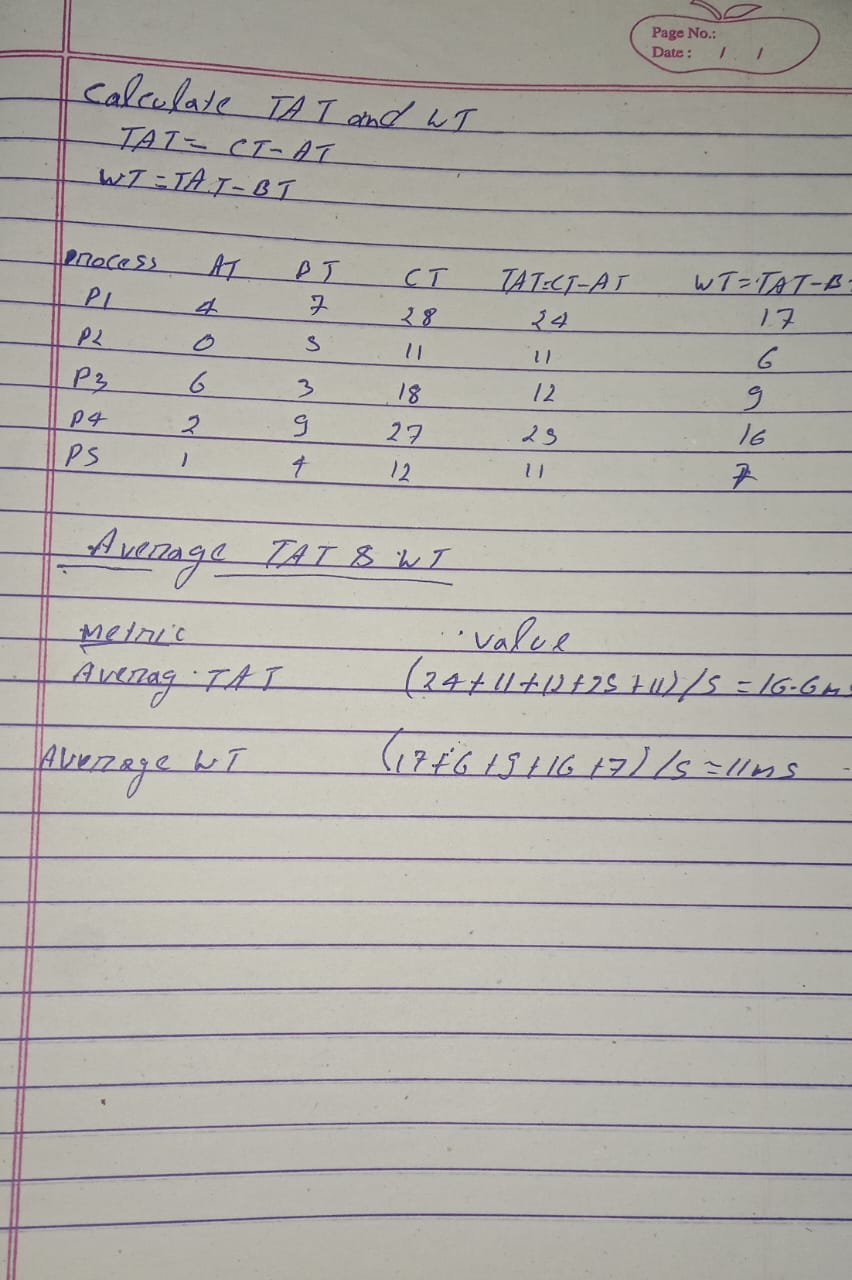 Page No.:
Date: / /
Calculate TAT and WT
TAT = CT-AT
WT = TAT-BT
Process AT BT CT TAT=CT-AT WT=TAT-B
P1 4 7 28 24 17
P2 0 5 11 11 6
P3 6 3 18 12 9
P4 2 9 27 25 16
P5 1 4 12 11 7
Average TAT & WT
Metric value
Averag TAT (24+11+12+25+11)/5 = 16.6m
Average WT (17+6+9+16+7)/5 = 11ms